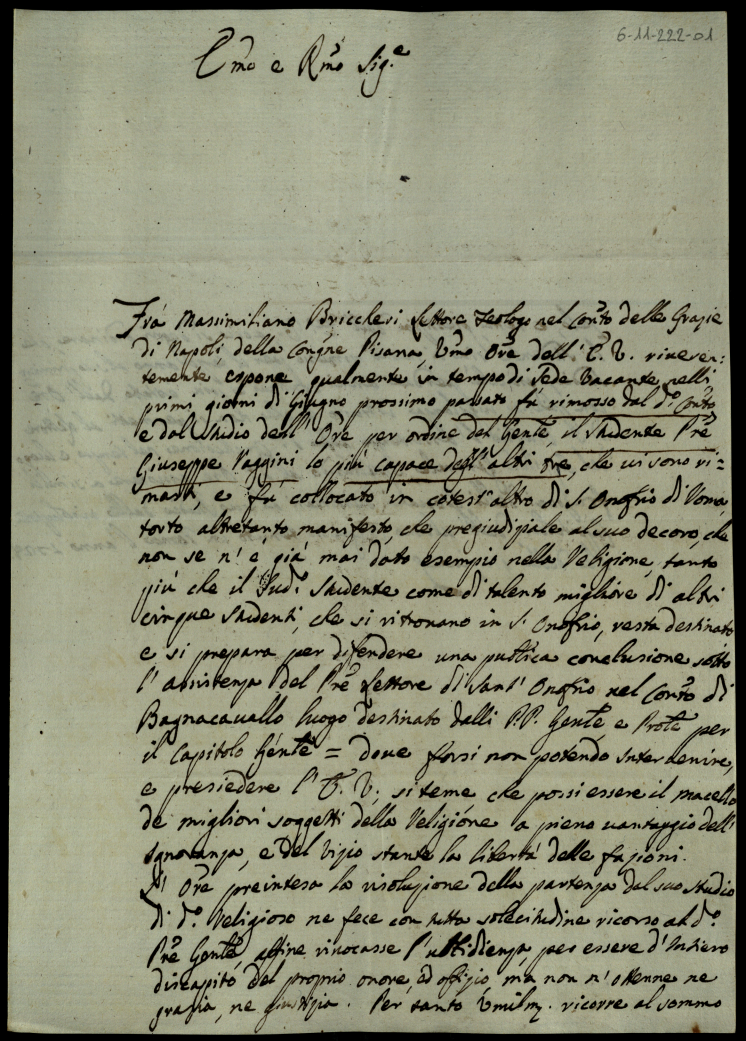 6-11-222-01
Emo e Rmo Sig.e
Frà Massimiliano Briccheri Lettore Teologo nel Conto delle Grazie
di Napoli, della Congne Pisana, Umo Ore dell' E. V. riveren:
temente espone qualmente in tempo di Sede Vacante, nelli
primi giorni di Giugno prossimo passato fù rimosso dal do Conto
e dal studio dell' Ore per ordine del Genle, il studente Pre
Giuseppe Vaggini lo più capace degl' altri tre, che vi sono ri=
masti, e fù collocato in cotest' altro di S. Onofrio di Roma,
torto altretanto manifesto, che pregiudiziale al suo decoro, che
non se n' è già mai dato esempio nella Religione, tanto
più che il sudo studente come di talento migliore di altri
cinque studenti, che si ritrovano in S. Onofrio, resta destinato
e si prepara per difendere una publica conclusione sotto
l' assistenza del Pre Lettore di Sant' Onofrio nel Conto di
Bagnacavallo luogo destinato dalli P.P. Genle, e Prole per
il Capitolo Genle = dove forsi non potendo intervenire,
e presiedere l' E. V., si teme che possi essere il macello
de migliori soggetti della Religione a pieno vantaggio dell'
Ignoranza, e del Vizio stante la libertà delle fazioni.
L' Ore preintesa la risoluzione della partenza dal suo studio
di do Religioso ne fece con tutta solecitudine ricorso al do
Pre Genle affine rivocasse l' ubbidienza, per essere d' intiero
discapito del proprio onore, ed offizio, ma non n' ottenne ne
grazia, ne giustizia. Per tanto Umilmte ricorre al sommo